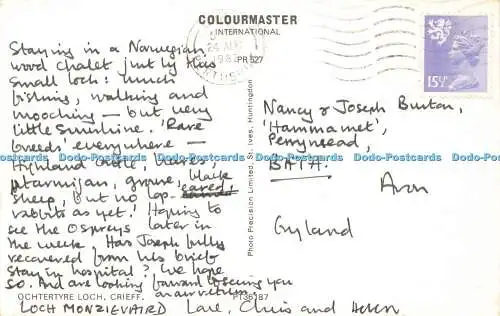 COLOURMASTER
INTERNATIONAL
24 AUG
198
PERTHSHIRE
PR 527
15½P
Staying in a Norwegian
wood chalet just by this
small loch: much
fishing, walking and
mooching – but very
little sunshine. 'Rare
breeds' everywhere –
Highland cattle, hares,
ptarmigan, grouse, black
sheep, but no lop-eared
rabbits as yet! Hoping to
see the Ospreys later in
the week. Has Joseph fully
recovered from his brief
stay in hospital? We hope
so. And are looking forward to seeing you
on our return.
Love, Chris and Helen
OCHTERTYRE LOCH, CRIEFF.
PT36187
LOCH MONZIEVAIRD
Photo Precision Limited, St. Ives, Huntingdon
Nancy & Joseph Burton,
'Hammamet',
Perrymead,
BATH.
Avon
England
Dodo-Postcards Dodo-Postcards Dodo-Postcards Dodo-Postcards Dodo-Postcards Dodo-Postcards Dodo-Postcards